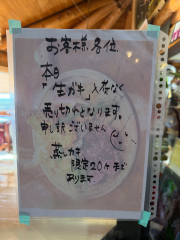 お客様各位
本日
「生ガキ」入荷なく
売り切れとなります。
申し訳ございません
蒸しカキ
限定20ヶまで
あります。